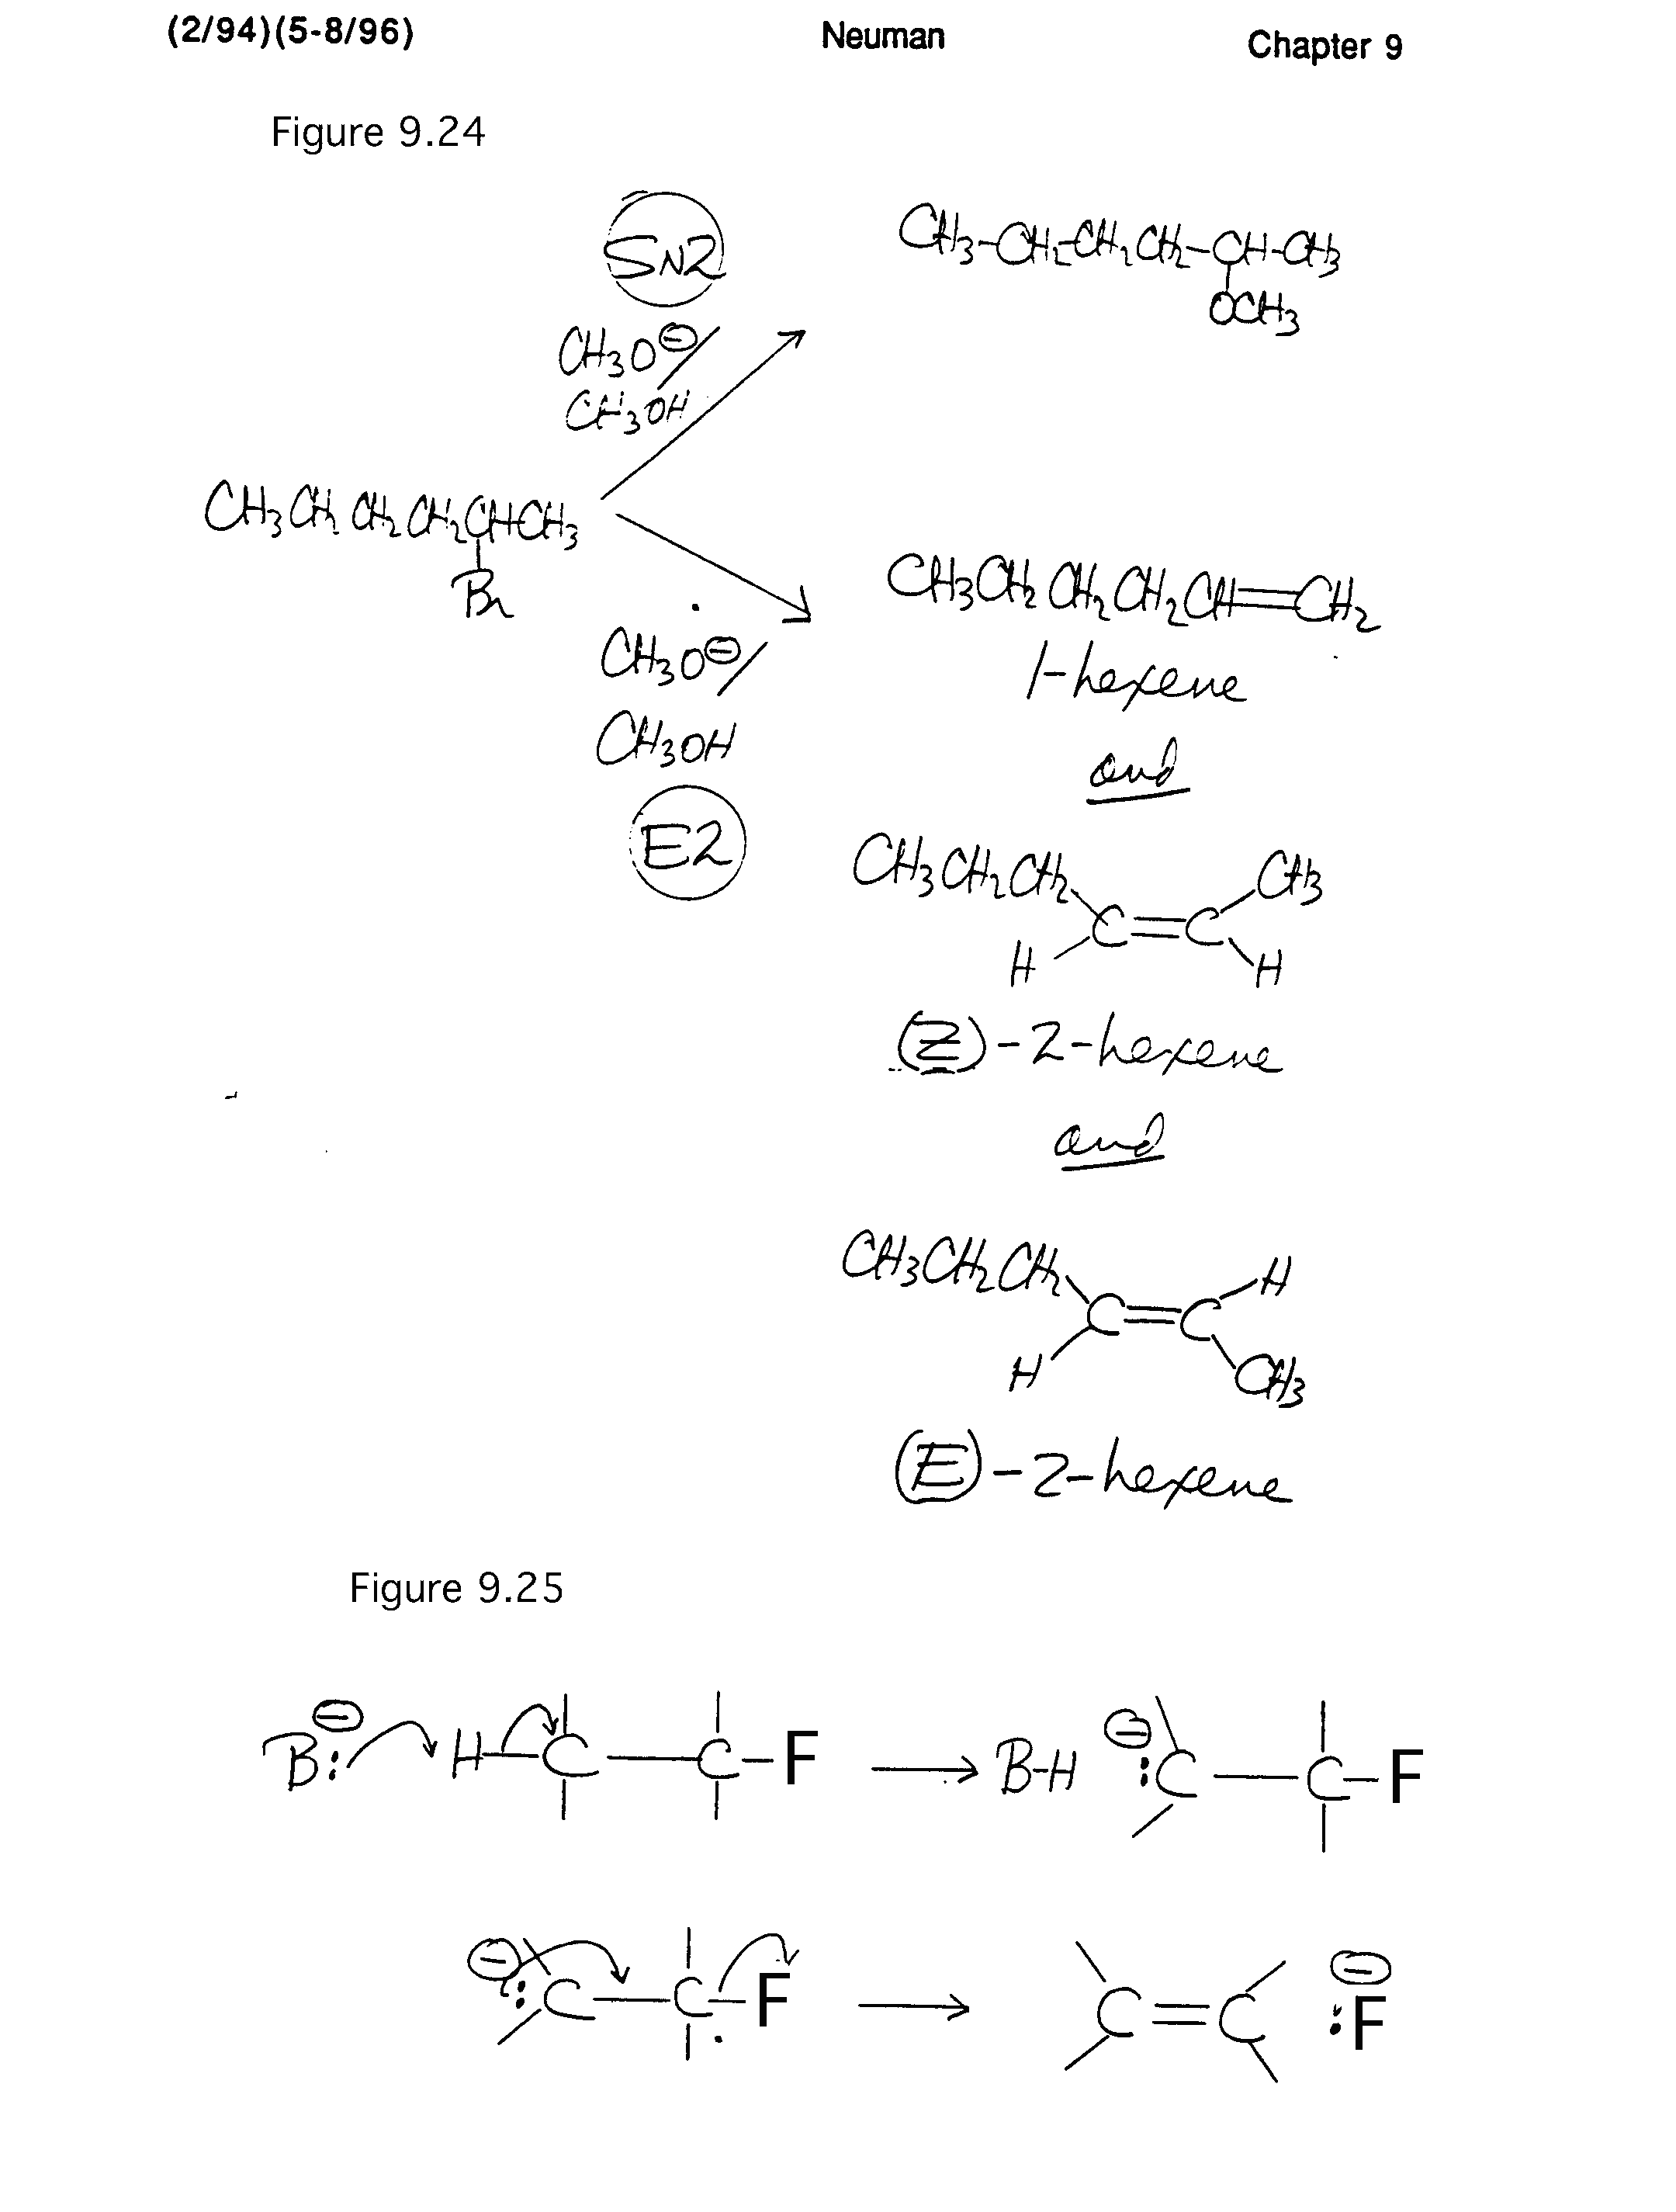 (2/94)(5-8/96) Neuman Chapter 9
Figure 9.24
SN2
CH3-CH2-CH2CH2-CH-CH3
OCH3
CH3O⊖/
CH3OH
CH3CH2CH2CH2CHCH3
Br
CH3O⊖/
CH3OH
E2
CH3CH2CH2CH2CH=CH2
1-hexene
and
CH3CH2CH2 CH3
C=C
H H
(Z)-2-hexene
and
CH3CH2CH2 H
C=C
H CH3
(E)-2-hexene
Figure 9.25
B:⊖ H-C-C-F → B-H ⊖:C-C-F
⊖:C-C-F → C=C :F⊖